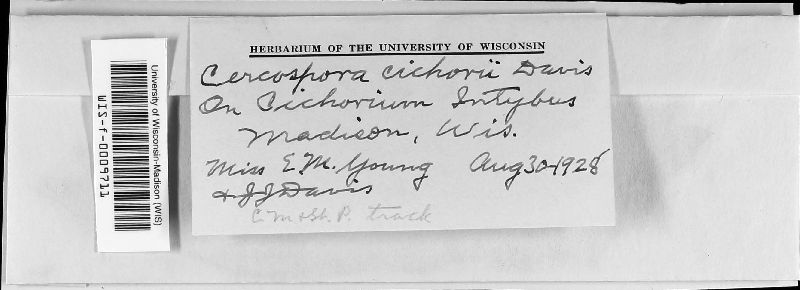 HERBARIUM OF THE UNIVERSITY OF WISCONSIN
Cercospora cichorii Davis
On Cichorium Intybus
Madison, Wis.
Miss E. M. Young Aug 30 1928
& J J Davis
C. M & St. P. track
University of Wisconsin-Madison (WIS)
WIS-f-0009711